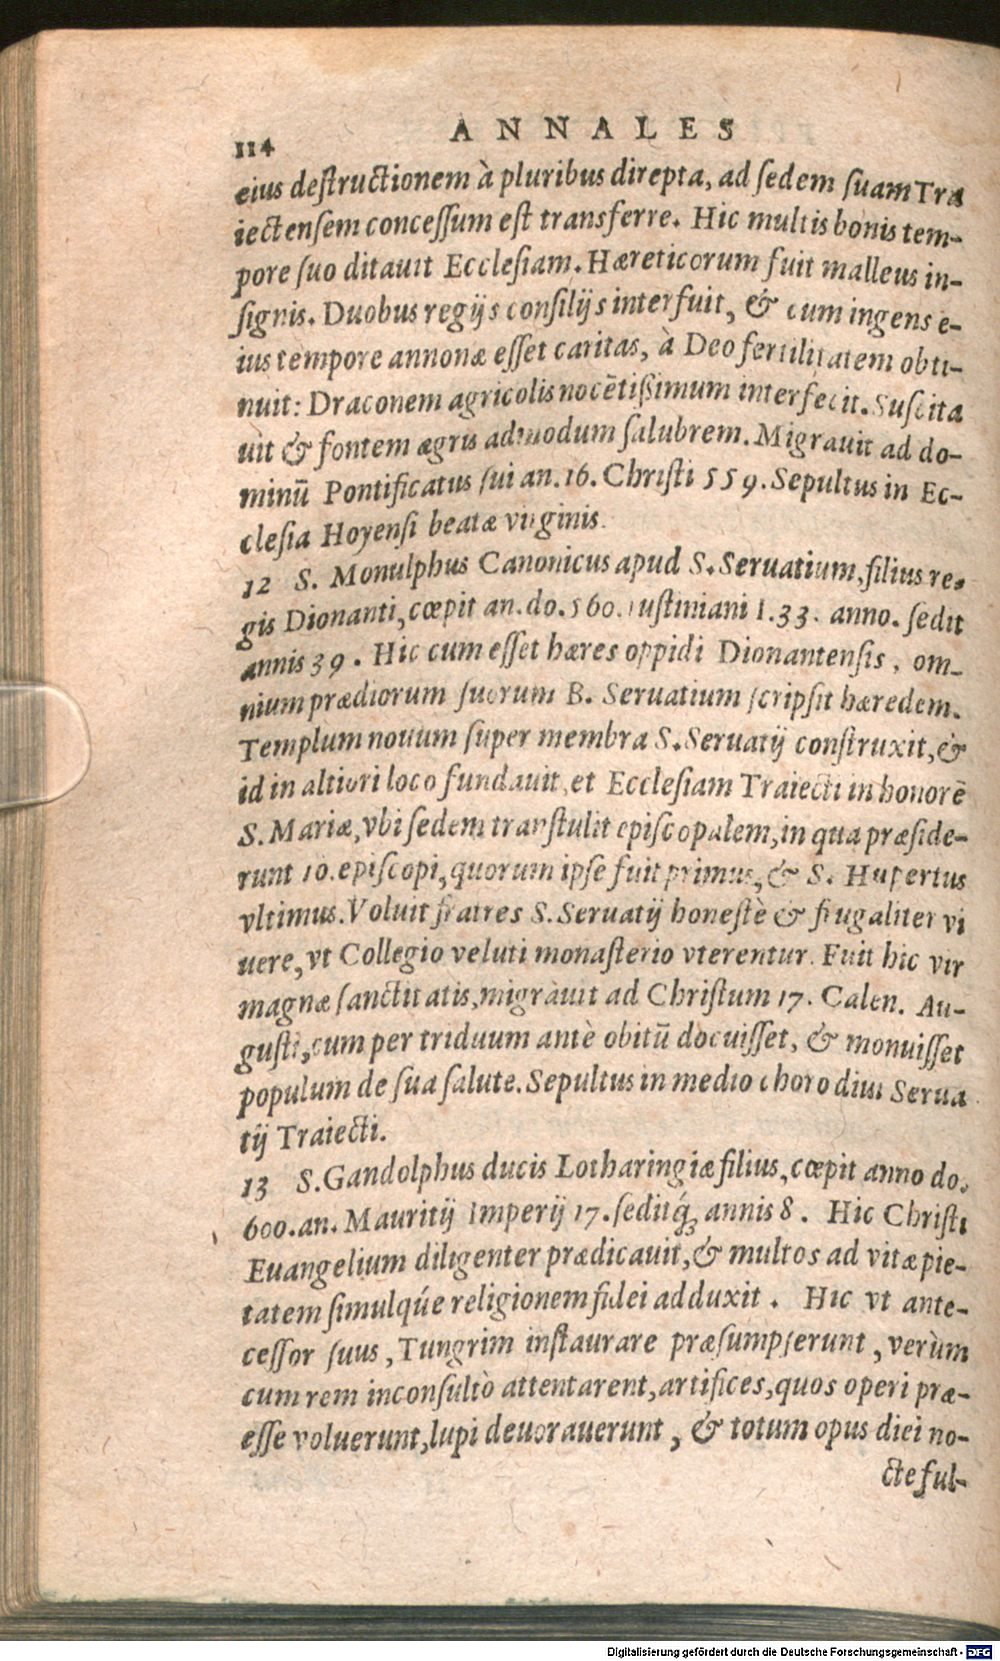 114 ANNALES
eius destructionem à pluribus direpta, ad sedem suam Tra
iectensem concessum est transferre. Hic multis bonis tem-
pore suo ditauit Ecclesiam. Hæreticorum fuit malleus in-
signis. Duobus regijs consilijs interfuit, & cum ingens e-
ius tempore annonæ esset caritas, à Deo fertilitatem obti-
nuit: Draconem agricolis nocētissimum interfecit. Suscita
uit & fontem ægris admodum salubrem. Migrauit ad do-
minū Pontificatus sui an. 16. Christi 559. Sepultus in Ec-
clesia Hoyensi beatæ virginis.
12 S. Monulphus Canonicus apud S. Seruatium, filius re-
gis Dionanti, cœpit an. do. 560. Iustiniani I. 33. anno. sedit
annis 39. Hic cum esset hæres oppidi Dionantensis, om-
nium prædiorum suorum B. Seruatium scripsit hæredem.
Templum nouum super membra S. Seruatij construxit, &
id in altiori loco fundauit, et Ecclesiam Traiecti in honorē
S. Mariæ, vbi sedem transtulit episcopalem, in qua præside-
runt 10. episcopi, quorum ipse fuit primus, & S. Hupertus
vltimus. Voluit fratres S. Seruatij honestè & frugaliter vi
uere, vt Collegio veluti monasterio vterentur. Fuit hic vir
magnæ sanctitatis, migrauit ad Christum 17. Calen. Au-
gusti, cum per triduum antè obitū docuisset, & monuisset
populum de sua salute. Sepultus in medio choro diui Serua
tij Traiecti.
13 S. Gandolphus ducis Lotharingiæ filius, cœpit anno do.
600. an. Mauritij Imperij 17. seditq́; annis 8. Hic Christi
Euangelium diligenter prædicauit, & multos ad vitæ pie-
tatem simulqúe religionem fidei adduxit. Hic vt ante-
cessor suus, Tungrim instaurare præsumpserunt, verùm
cum rem inconsultò attentarent, artifices, quos operi præ-
esse voluerunt, lupi deuorauerunt, & totum opus diei no-
cte ful-
Digitalisierung gefördert durch die Deutsche Forschungsgemeinschaft - DFG